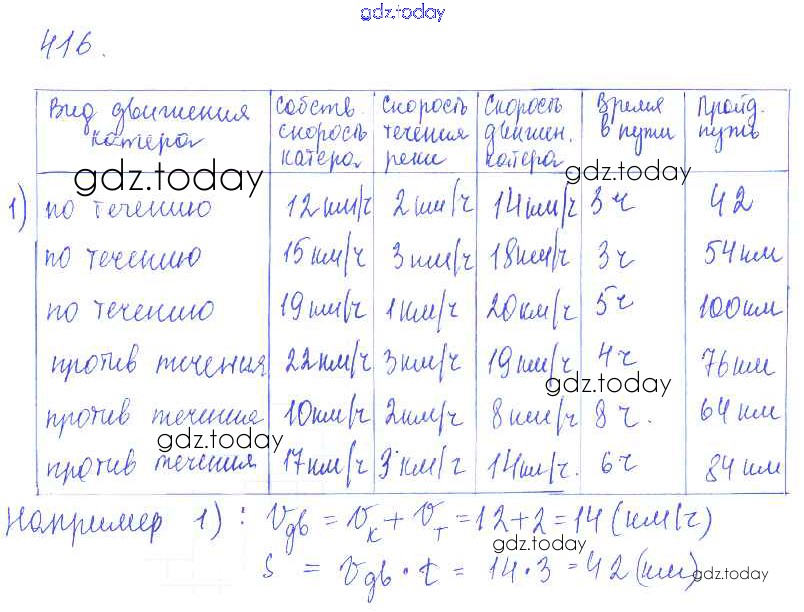 gdz.today
416.
Вид движения катера | Собств. скорость катера | Скорость течения реки | Скорость движен. катера | Время в пути | Пройд. путь
gdz.today
gdz.today
1) по течению | 12 км/ч | 2 км/ч | 14 км/ч | 3 ч | 42
по течению | 15 км/ч | 3 км/ч | 18 км/ч | 3 ч | 54 км
по течению | 19 км/ч | 1 км/ч | 20 км/ч | 5 ч | 100 км
против течения | 22 км/ч | 3 км/ч | 19 км/ч | 4 ч | 76 км
gdz.today
против течения | 10 км/ч | 2 км/ч | 8 км/ч | 8 ч. | 64 км
gdz.today
против течения | 17 км/ч | 3 км/ч | 14 км/ч. | 6 ч | 84 км
Например 1) : Vдв = Vк + Vт = 12 + 2 = 14 (км/ч)
gdz.today
S = Vдв · t = 14 · 3 = 42 (км)
gdz.today